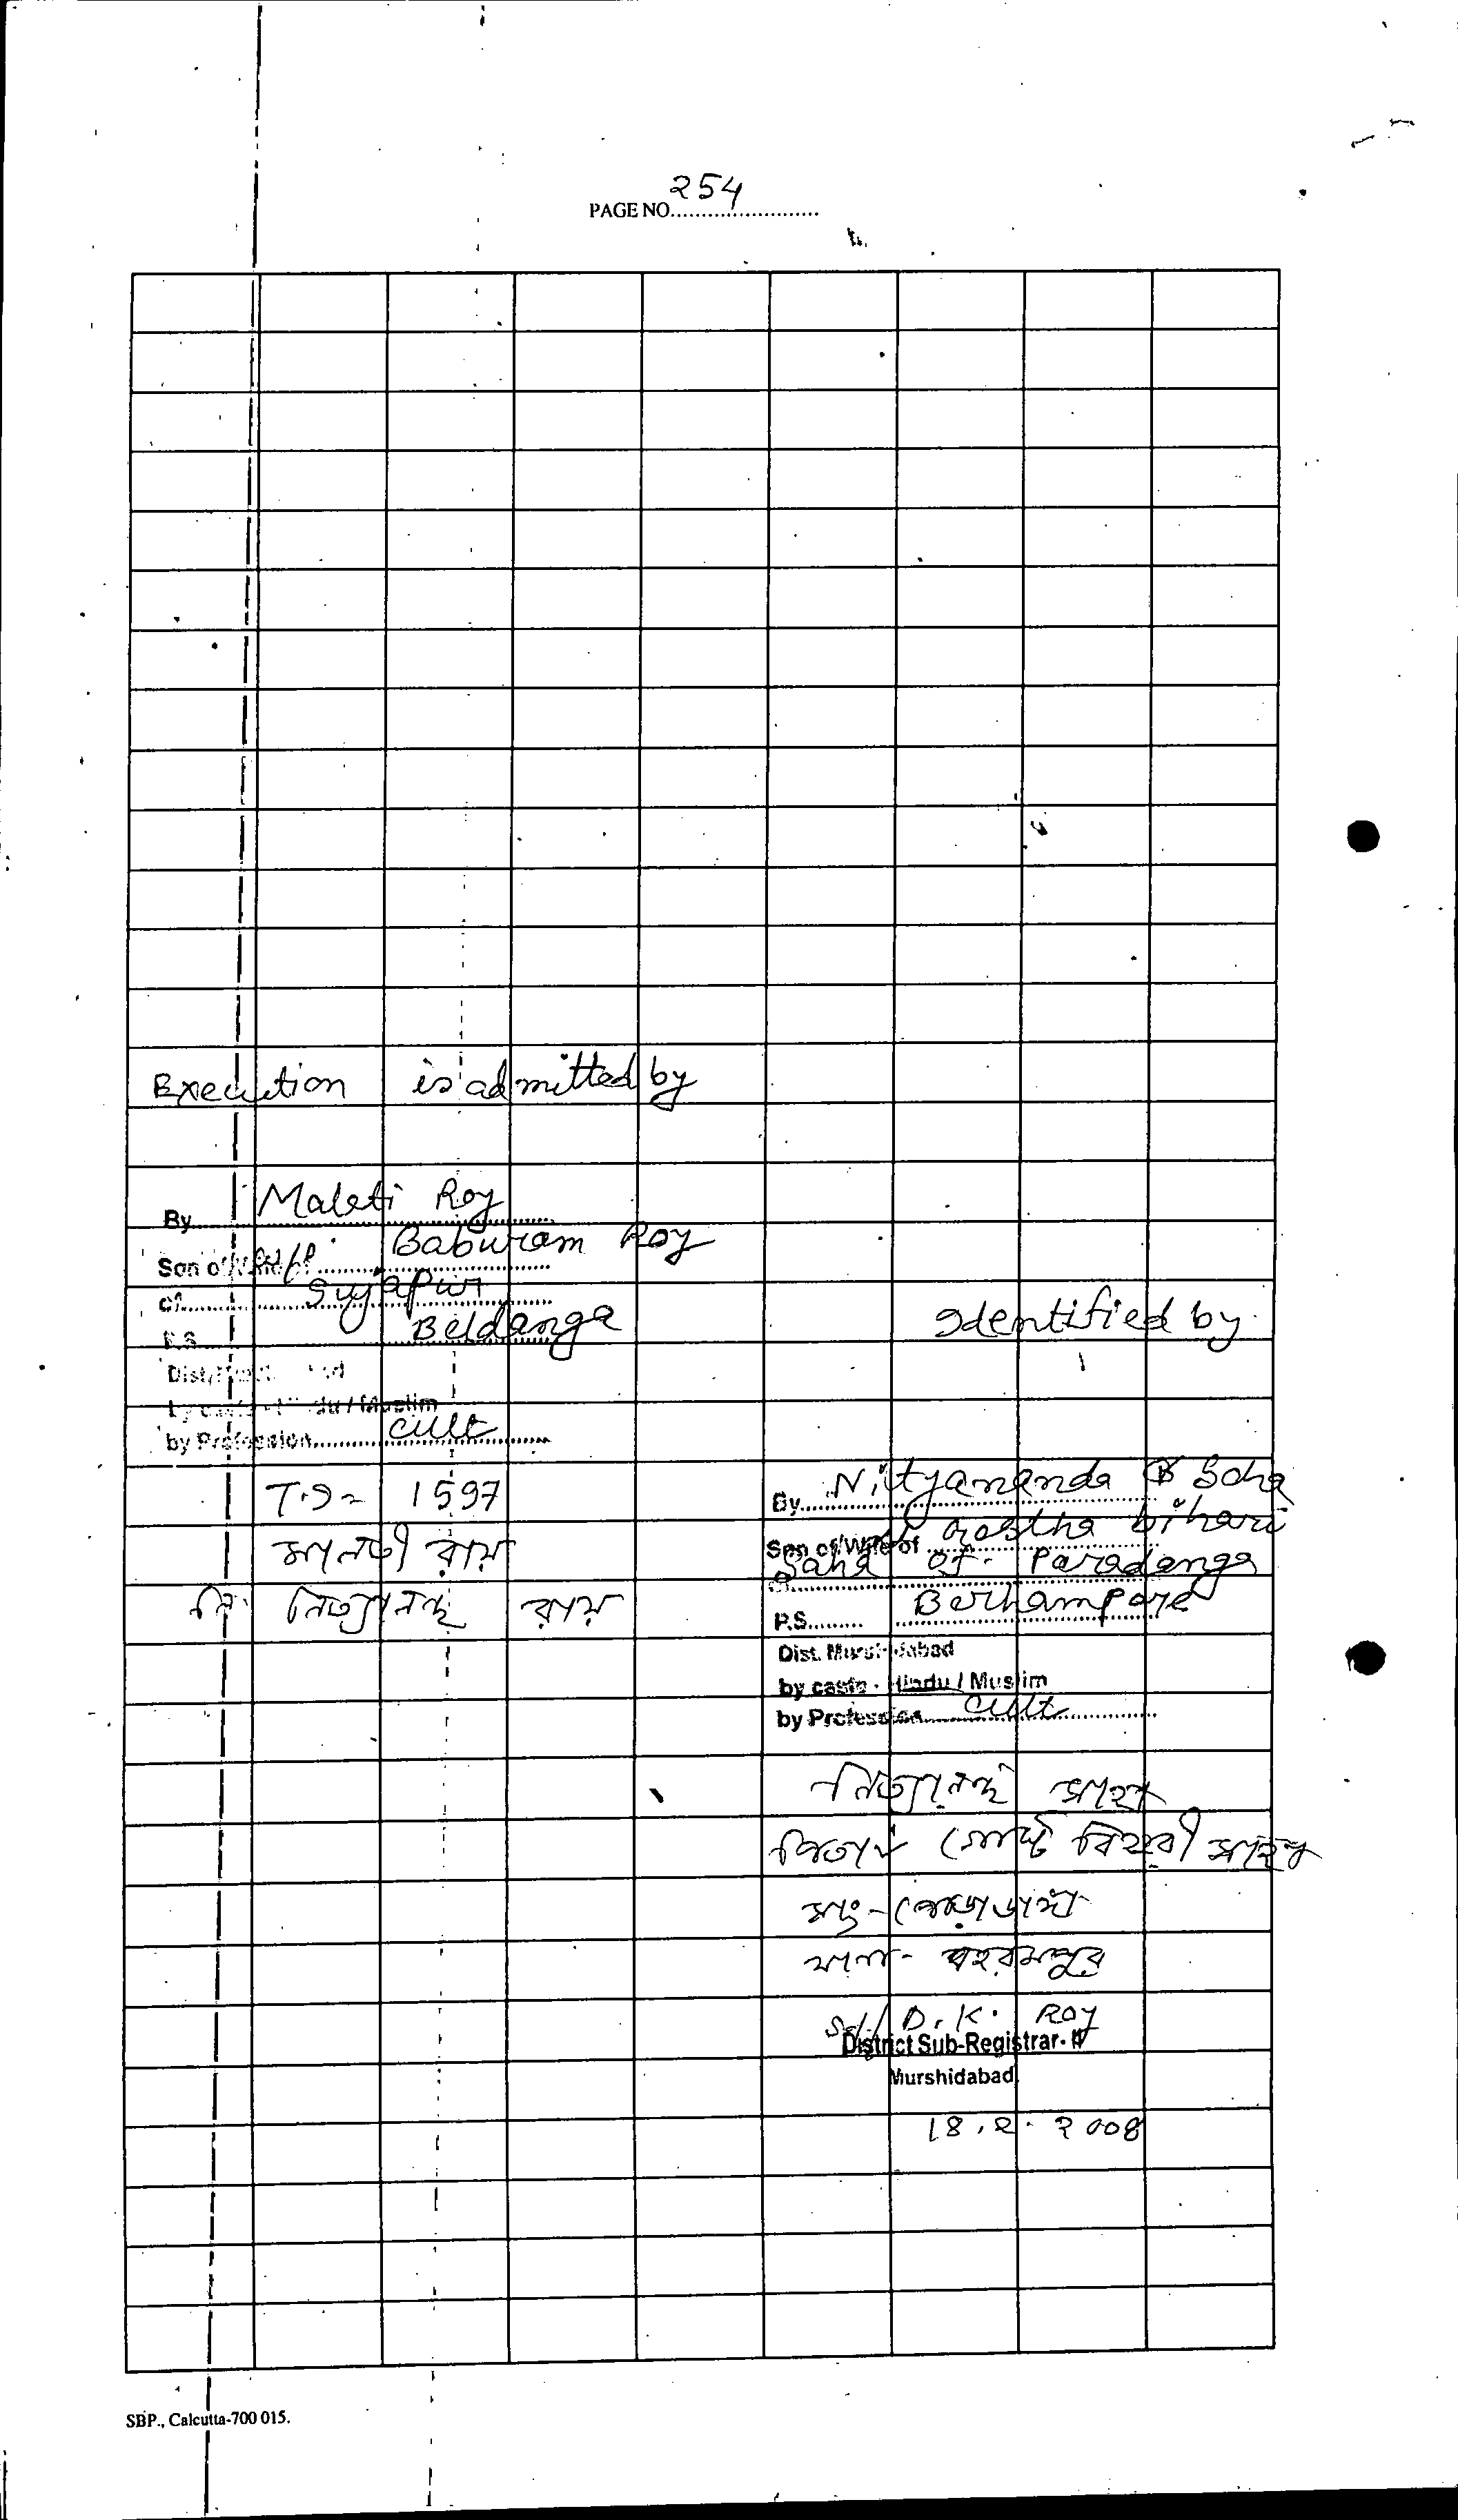 PAGE NO. 254
Execution is admitted by
By Maleti Roy
Son of/Wife of Baburam Roy
of Sujapur
P.S. Beldanga
Dist.
by caste - Hindu / Muslim
by Profession Cult
T.I- 1597
মালতী রায়
নি: নিত্যানন্দ রায়
Identified by
By Nityananda Saha
Son of/Wife of Gostha bihari
Saha of. Paradanga
P.S. Berhampore
Dist. Murshidabad
by caste - Hindu / Muslim
by Profession Cult
নিত্যানন্দ সাহা
পিতা গোষ্ট বিহারী সাহা
সাং-
থানা- বহরমপুর
Sd/ D. K. Roy
District Sub-Registrar- II
Murshidabad
18.2.2008
SBP., Calcutta-700 015.